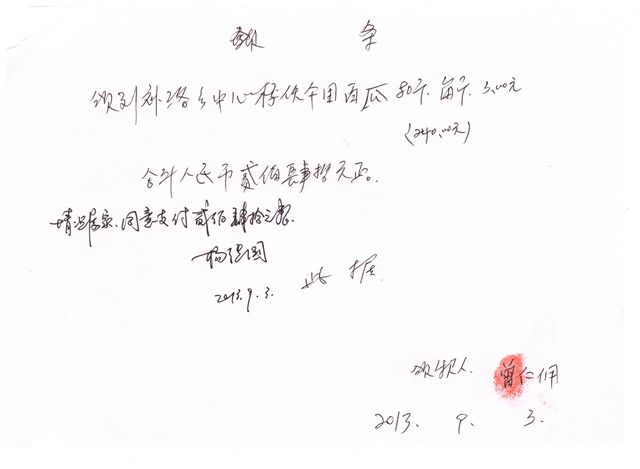 领 条
领到补洛乡中心校伙食用西瓜80斤.每斤.3.00元
(240.00元)
合计人民币贰佰肆拾元正.
情况属实.同意支付贰佰肆拾元整.
2013.9.3.
此 据
领款人. 曾仁佣
2013. 9. 3.